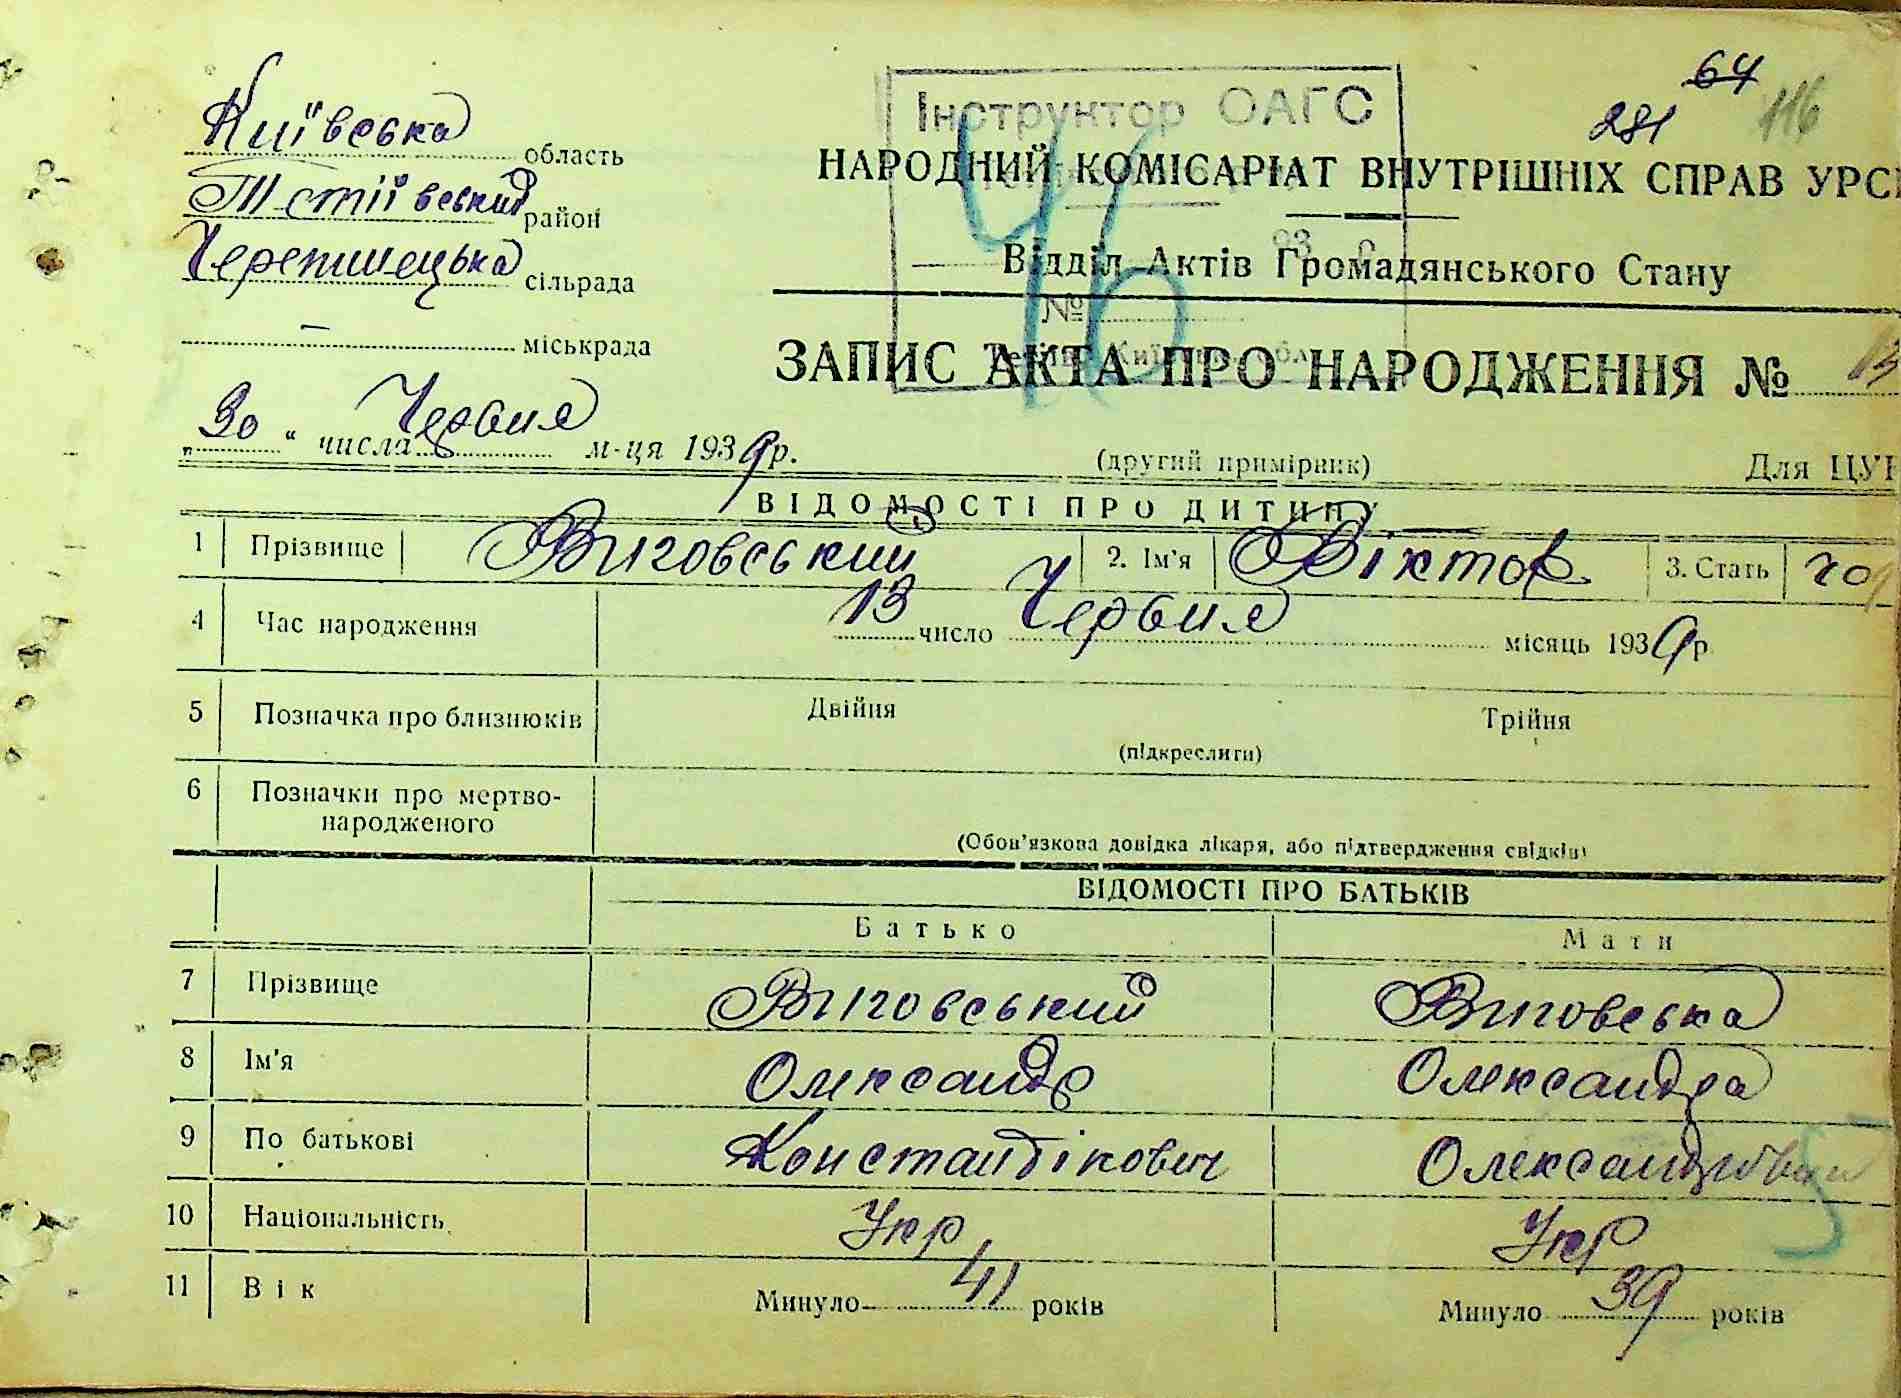 64
281 116
Інструктор ОАГС
Київська область
НАРОДНИЙ КОМІСАРІАТ ВНУТРІШНІХ СПРАВ УРС
Тетіївський район
46
Відділ Актів Громадянського Стану
Черепинецька сільрада
№
міськрада
ЗАПИС АКТА ПРО НАРОДЖЕННЯ № 13
„30“ числа Червня м-ця 1939 р.
(другий примірник) Для ЦУН
ВІДОМОСТІ ПРО ДИТИНУ
1 Прізвище Виговський 2. Ім'я Віктор 3. Стать чол
4 Час народження 13 число Червня місяць 1939 р.
5 Позначка про близнюків Двійня Трійня
(підкреслити)
6 Позначки про мертво-
народженого
(Обов'язкова довідка лікаря, або підтвердження свідків)
ВІДОМОСТІ ПРО БАТЬКІВ
Батько Мати
7 Прізвище Виговський Виговська
8 Ім'я Олександр Олександра
9 По батькові Констандікович
10 Національність Укр Укр
11 Вік Минуло 41 років Минуло 39 років